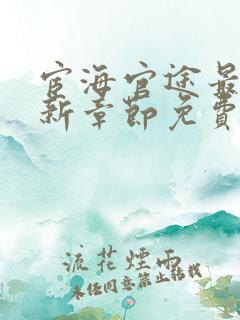 宦海官途最
新章節免費
流花煙雨
未经同意禁止转载